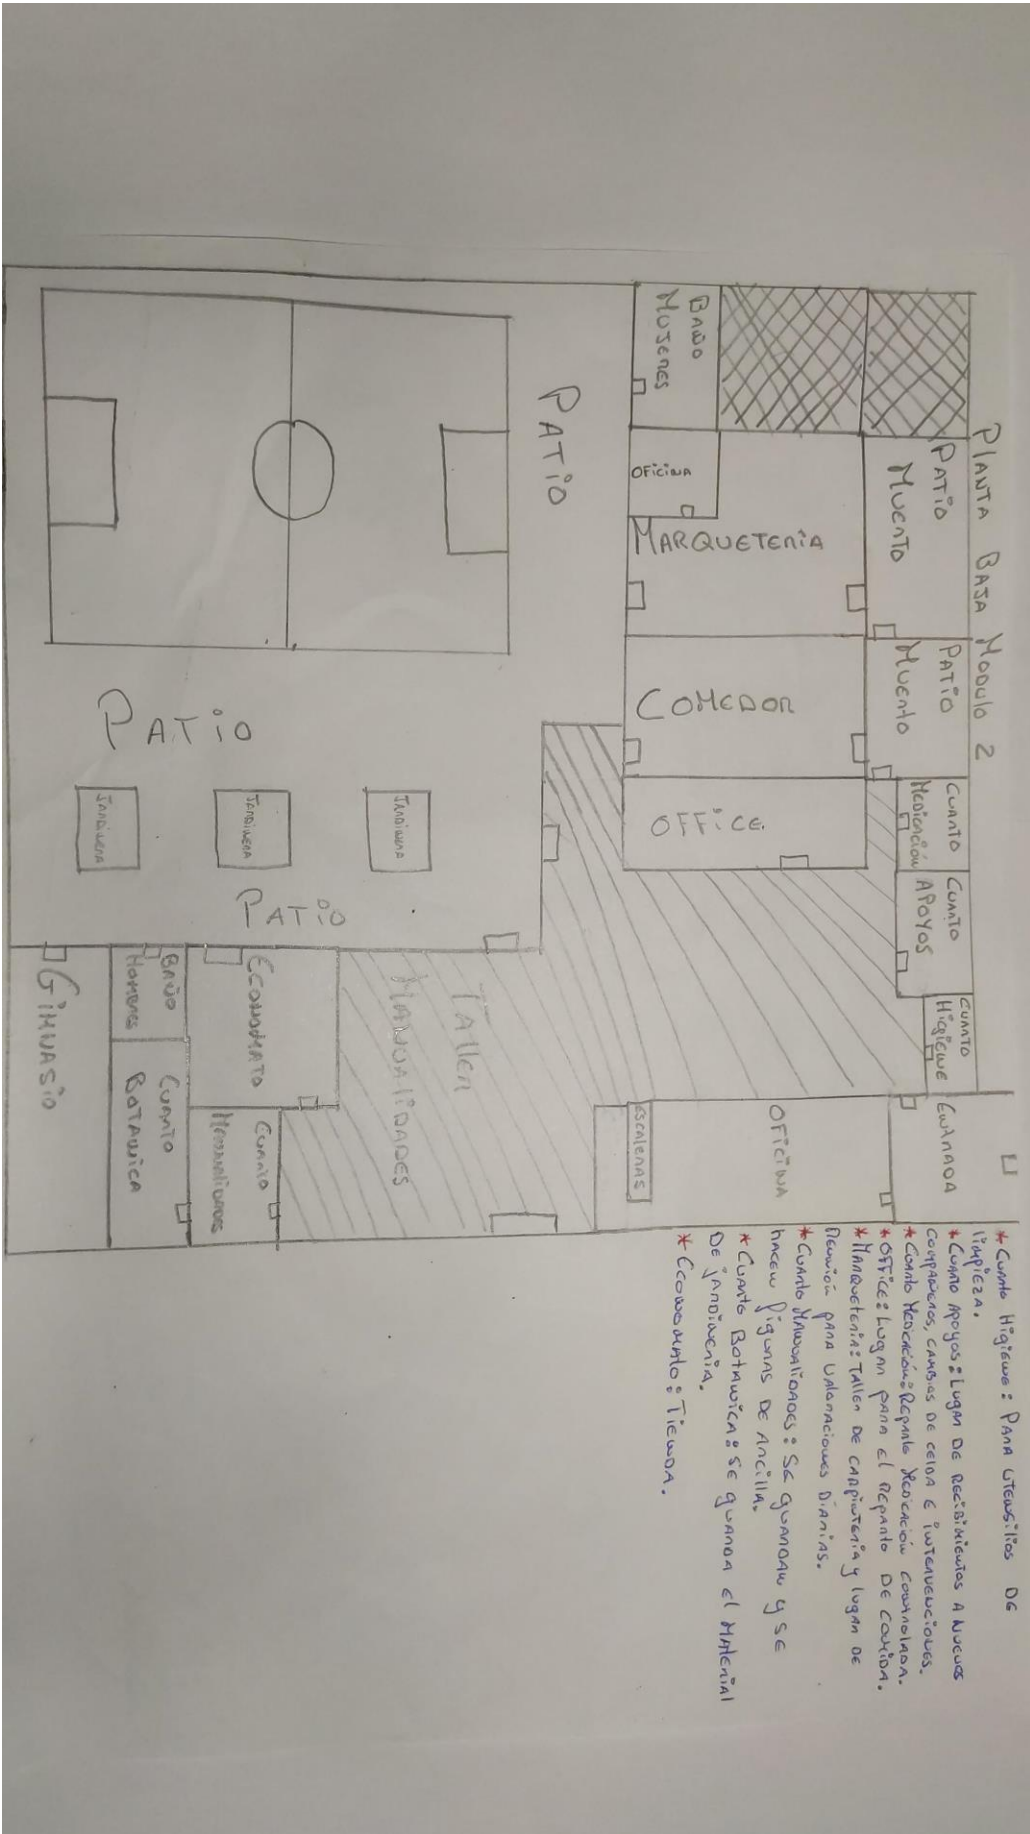 PLANTA BAJA MODULO 2
PATIO
MUERTO
PATIO
MUERTO
CUARTO
MEDICACIÓN
CUARTO
APOYOS
CUARTO
HIGIENE
ENTRADA
BAÑO
MUJERES
OFICINA
MARQUETERIA
COMEDOR
OFFICE.
OFICINA
ESCALERAS
PATIO
PATIO
JARDINERA
JARDINERA
JARDINERA
PATIO
TALLER
MANUALIDADES
ECONOMATO
CUARTO
MANUALIDADES
BAÑO
HOMBRES
CUARTO
BOTANICA
GIMNASIO
* CUARTO HIGIENE: PARA UTENSILIOS DE
LIMPIEZA.
* CUARTO APOYOS: LUGAR DE RECIBIMIENTOS A NUEVOS
COMPAÑEROS, CAMBIOS DE CELDA E INTERVENCIONES.
* CUARTO MEDICACIÓN: REPARTO MEDICACIÓN CONTROLADA.
* OFFICE: LUGAR PARA EL REPARTO DE COMIDA.
* MARQUETERIA: TALLER DE CARPINTERIA Y LUGAR DE
REUNIÓN PARA VALORACIONES DIARIAS.
* CUARTO MANUALIDADES: SE GUARDAN Y SE
HACEN FIGURAS DE ARCILLA.
* CUARTO BOTANICA: SE GUARDA EL MATERIAL
DE JARDINERIA.
* ECONOMATO: TIENDA.